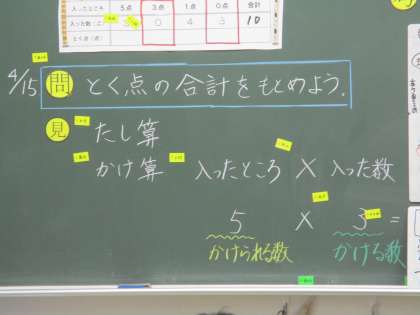 入ったところ 5点 3点 1点 0点 合計
入った数(こ) 3 0 4 3 10
とく点(点)
4/15 問 とく点の合計をもとめよう。
見 たし算
かけ算 入ったところ × 入った数
5 × 3 =
かけられる数 かける数